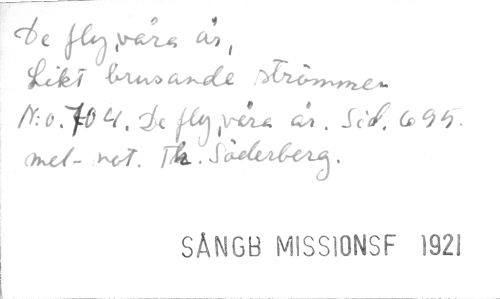 De fly, våra år,
Likt brusande strömmen
N:o. 704. De fly, våra år. Sid. 695.
mel-not. Th. Söderberg.
SÅNGB MISSIONSF 1921